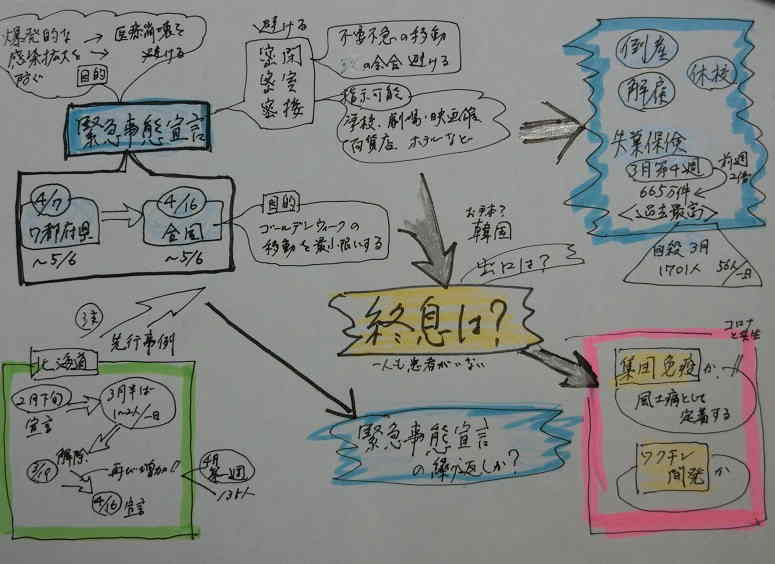 爆発的な → 医療崩壊を
感染拡大を → 避ける
防ぐ
目的
緊急事態宣言
避ける
密閉
密室
密接
不要不急の移動
の会合 避ける
指示可能
学校、劇場・映画館
百貨店、ホテルなど
4/7
7都府県
～5/6
4/16
全国
～5/6
目的
ゴールデンウィークの
移動を最小限にする
倒産
解雇
休校
失業保険
3月第4週
665万件
前週
2倍
<過去最高>
自殺 3月
1701人 56人/一日
お手本?
韓国
出口は?
終息は?
一人も患者がいない
先行事例
北海道
2月下旬
宣言
3月半ば
1〜2人/一日
解除
3/19
再び増加!!
4/16 宣言
4月
第一週
135人
緊急事態宣言
の繰り返しか?
コロナ
と共生
集団免疫か
風土病として
定着する
ワクチン
開発か